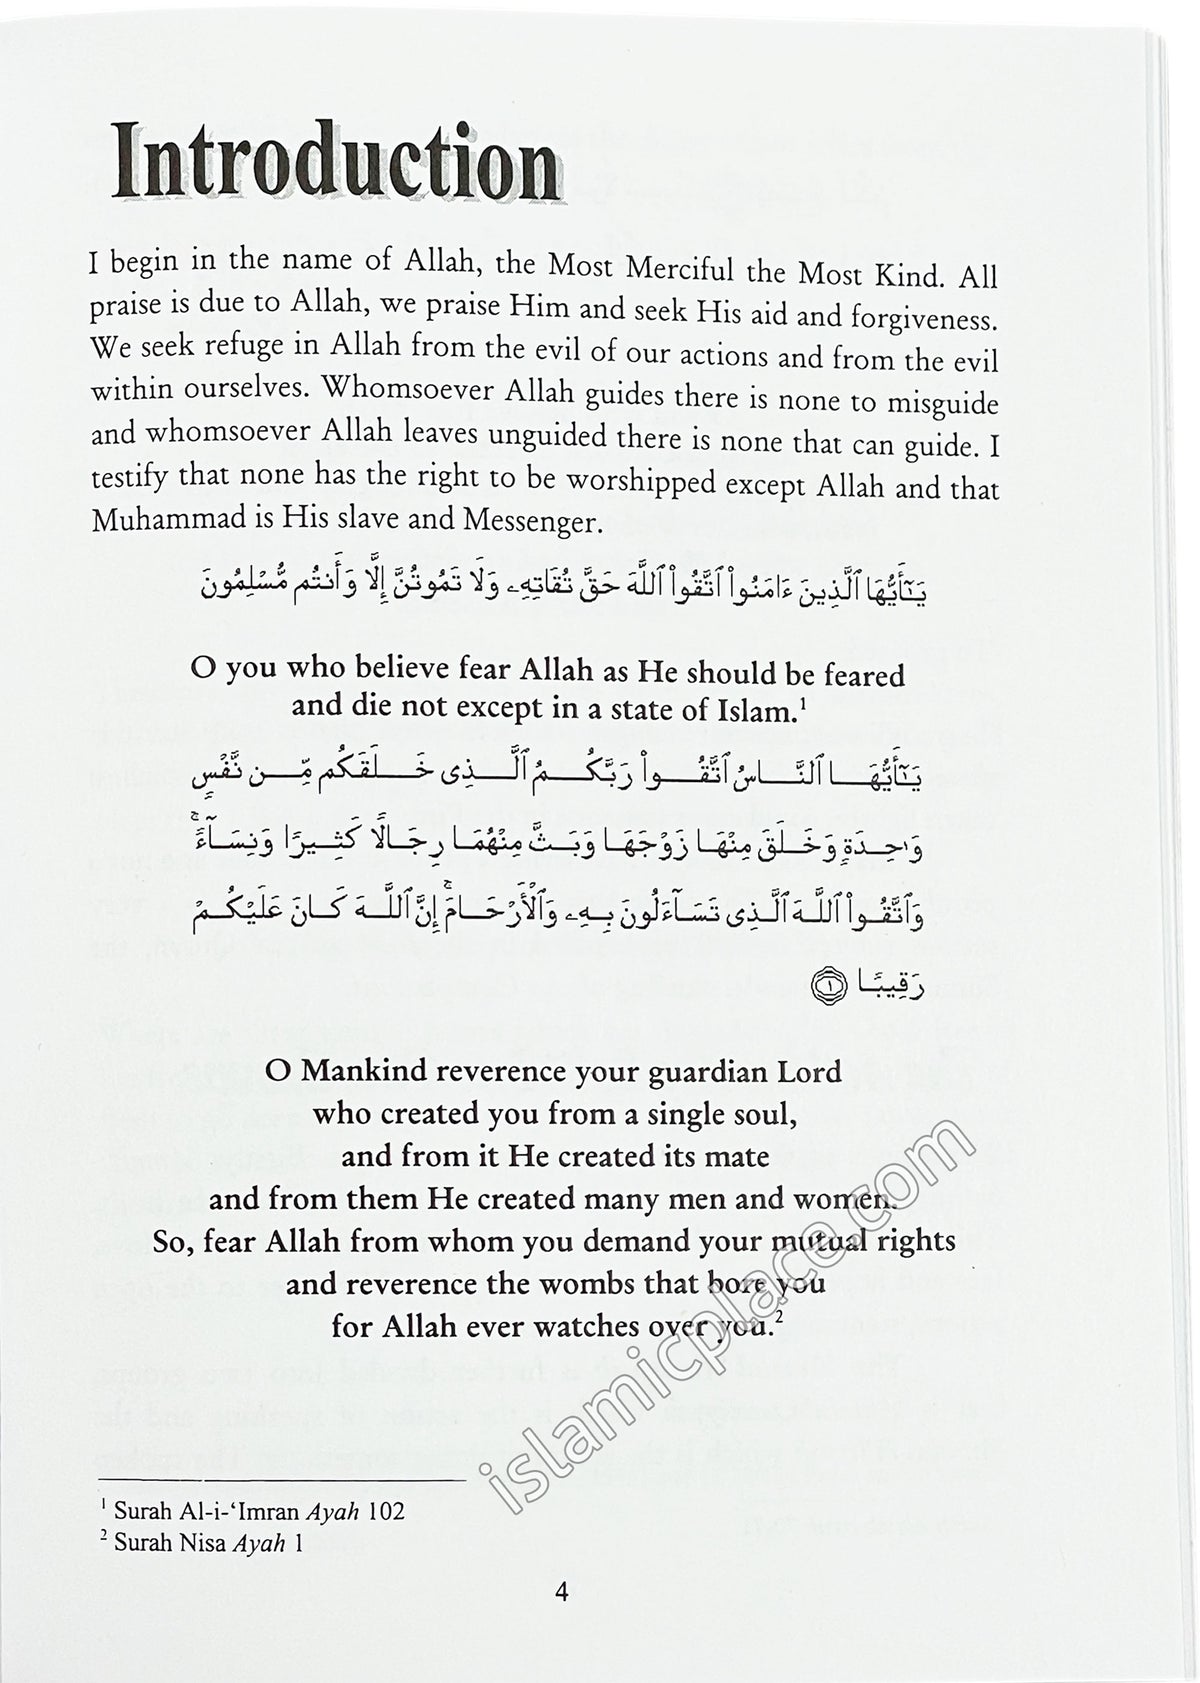 Introduction
I begin in the name of Allah, the Most Merciful the Most Kind. All
praise is due to Allah, we praise Him and seek His aid and forgiveness.
We seek refuge in Allah from the evil of our actions and from the evil
within ourselves. Whomsoever Allah guides there is none to misguide
and whomsoever Allah leaves unguided there is none that can guide. I
testify that none has the right to be worshipped except Allah and that
Muhammad is His slave and Messenger.
يَـٰٓأَيُّهَا ٱلَّذِينَ ءَامَنُوا۟ ٱتَّقُوا۟ ٱللَّهَ حَقَّ تُقَاتِهِۦ وَلَا تَمُوتُنَّ إِلَّا وَأَنتُم مُّسْلِمُونَ
O you who believe fear Allah as He should be feared
and die not except in a state of Islam.¹
يَـٰٓأَيُّهَا ٱلنَّاسُ ٱتَّقُوا۟ رَبَّكُمُ ٱلَّذِى خَلَقَكُم مِّن نَّفْسٍ
وَٰحِدَةٍ وَخَلَقَ مِنْهَا زَوْجَهَا وَبَثَّ مِنْهُمَا رِجَالًا كَثِيرًا وَنِسَآءً ۚ
وَٱتَّقُوا۟ ٱللَّهَ ٱلَّذِى تَسَآءَلُونَ بِهِۦ وَٱلْأَرْحَامَ ۚ إِنَّ ٱللَّهَ كَانَ عَلَيْكُمْ
رَقِيبًا ۝١
O Mankind reverence your guardian Lord
who created you from a single soul,
and from it He created its mate
and from them He created many men and women.
So, fear Allah from whom you demand your mutual rights
and reverence the wombs that bore you
for Allah ever watches over you.²
islamicplace.com
¹ Surah Al-i-‘Imran Ayah 102
² Surah Nisa Ayah 1
4